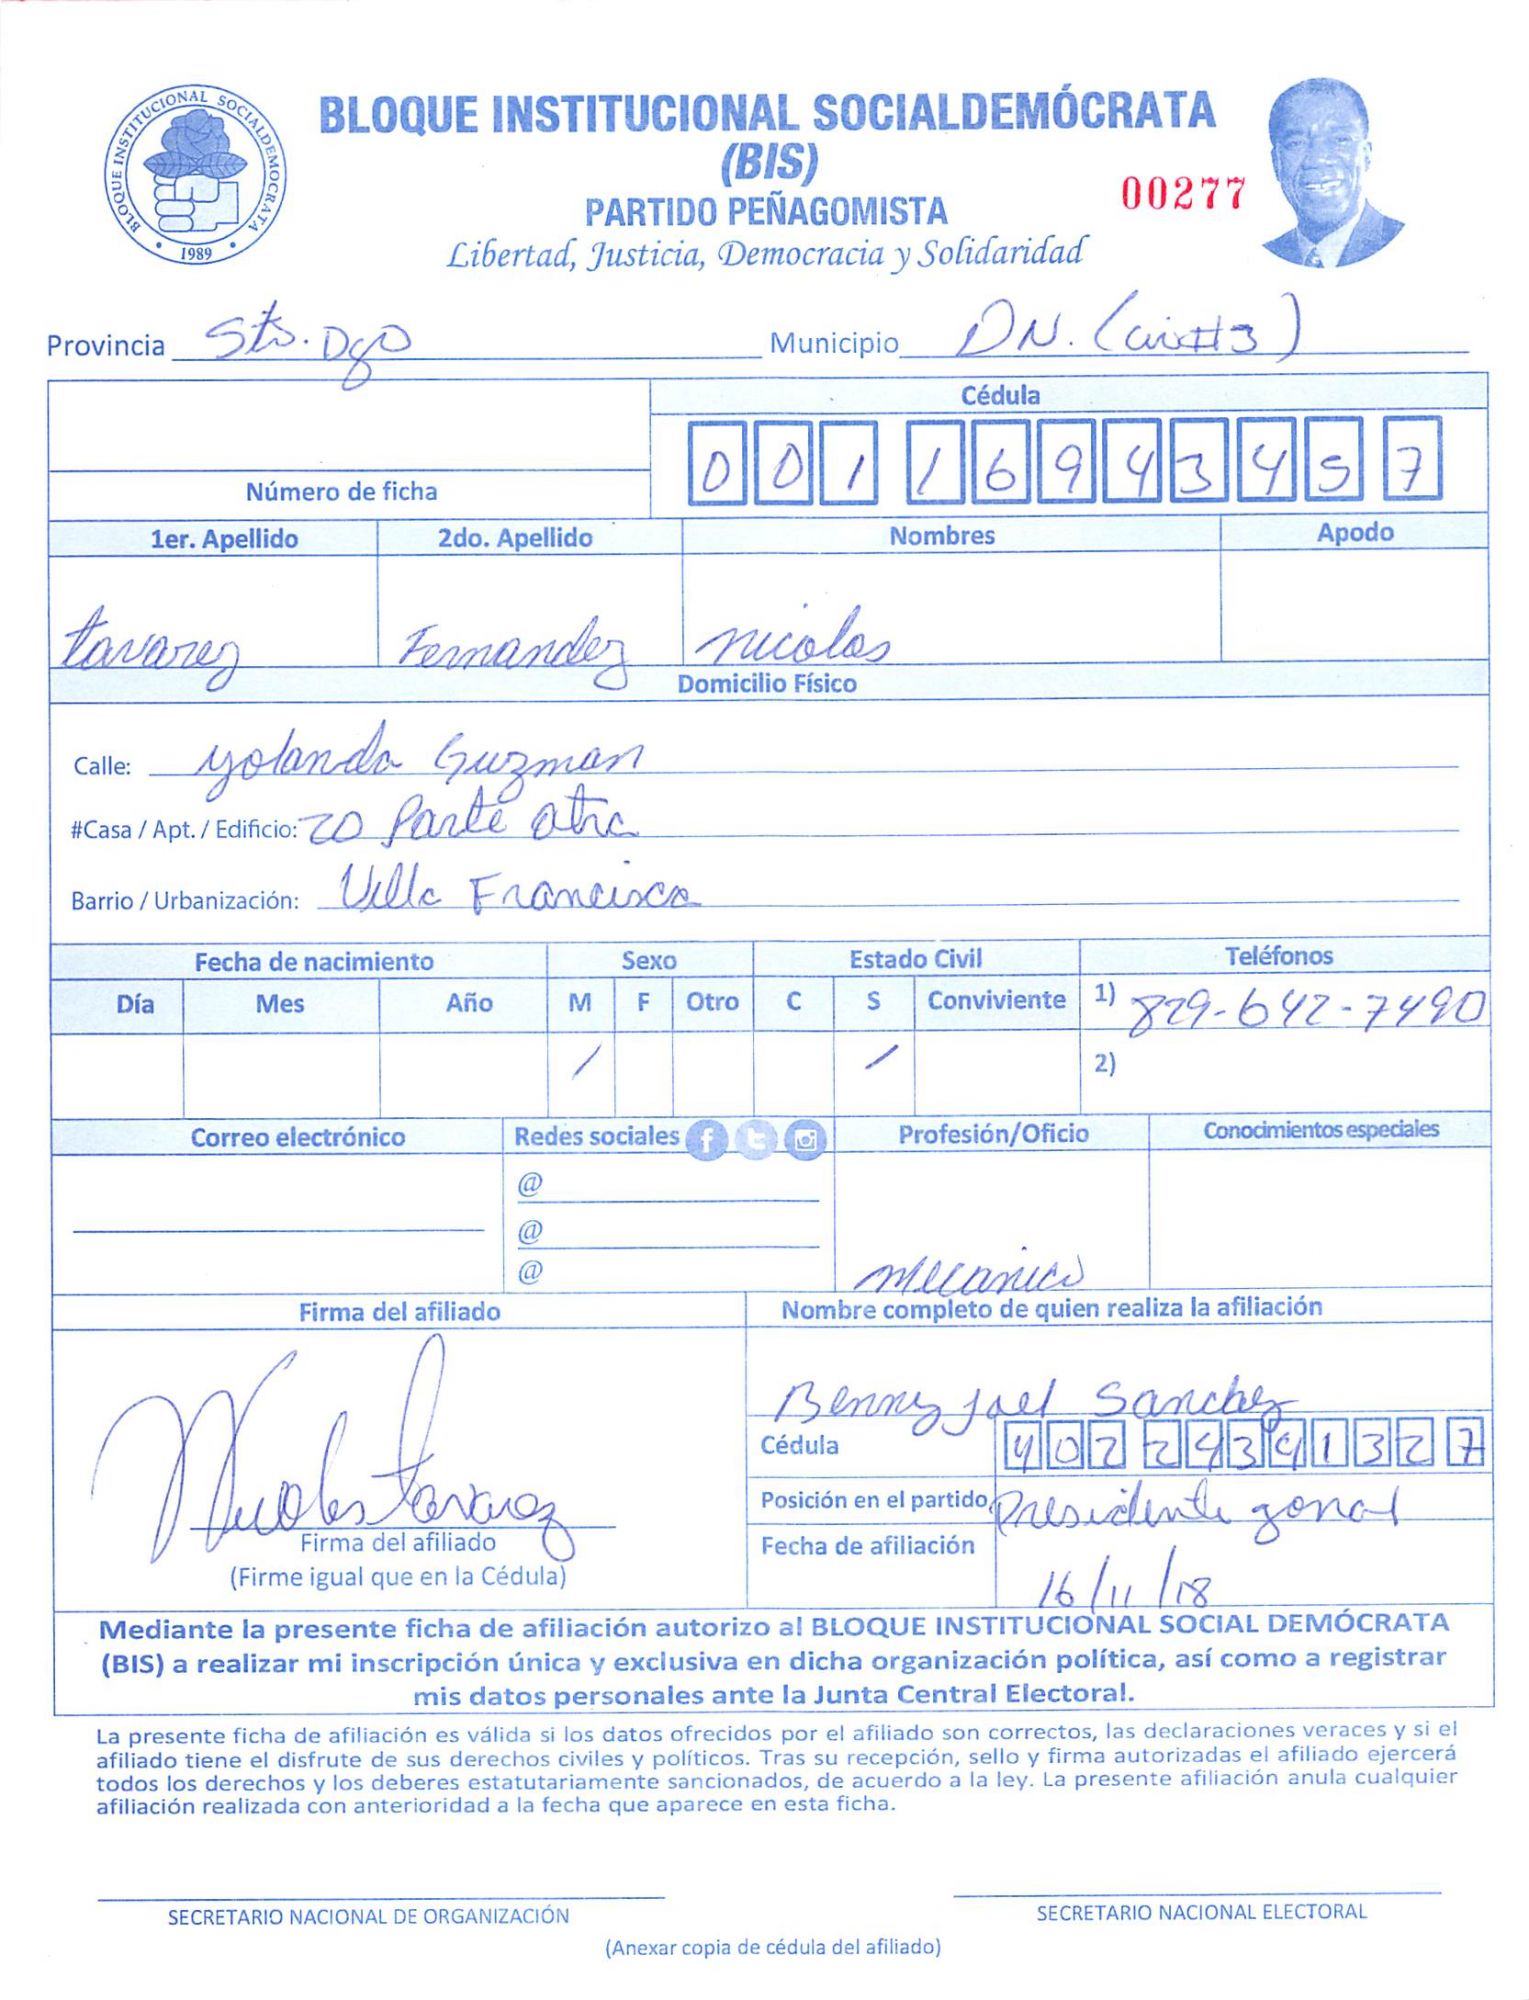 BLOQUE INSTITUCIONAL SOCIALDEMOCRATA
1989
BLOQUE INSTITUCIONAL SOCIALDEMÓCRATA
(BIS)
PARTIDO PEÑAGOMISTA
00277
Libertad, Justicia, Democracia y Solidaridad
Provincia Sto. Dgo Municipio DN. (cir#3)
Cédula
0 0 1 1 6 9 4 3 4 5 7
Número de ficha
1er. Apellido 2do. Apellido Nombres Apodo
tavarez Fernandez nicolas
Domicilio Físico
Calle: yolanda Guzman
#Casa / Apt. / Edificio: 20 Parte atra
Barrio / Urbanización: Villa Francisca
Fecha de nacimiento Sexo Estado Civil Teléfonos
Día Mes Año M F Otro C S Conviviente 1) 829-642-7490
/ / 2)
Correo electrónico Redes sociales f t Profesión/Oficio Conocimientos especiales
@
@
@ mecanico
Firma del afiliado Nombre completo de quien realiza la afiliación
Benny Joel Sanchez
Cédula 4 0 2 2 4 3 4 1 3 2 7
Posición en el partido Presidente zonal
Nicolas Tavarez
Firma del afiliado Fecha de afiliación
(Firme igual que en la Cédula) 16/11/18
Mediante la presente ficha de afiliación autorizo al BLOQUE INSTITUCIONAL SOCIAL DEMÓCRATA
(BIS) a realizar mi inscripción única y exclusiva en dicha organización política, así como a registrar
mis datos personales ante la Junta Central Electoral.
La presente ficha de afiliación es válida si los datos ofrecidos por el afiliado son correctos, las declaraciones veraces y si el
afiliado tiene el disfrute de sus derechos civiles y políticos. Tras su recepción, sello y firma autorizadas el afiliado ejercerá
todos los derechos y los deberes estatutariamente sancionados, de acuerdo a la ley. La presente afiliación anula cualquier
afiliación realizada con anterioridad a la fecha que aparece en esta ficha.
SECRETARIO NACIONAL DE ORGANIZACIÓN SECRETARIO NACIONAL ELECTORAL
(Anexar copia de cédula del afiliado)